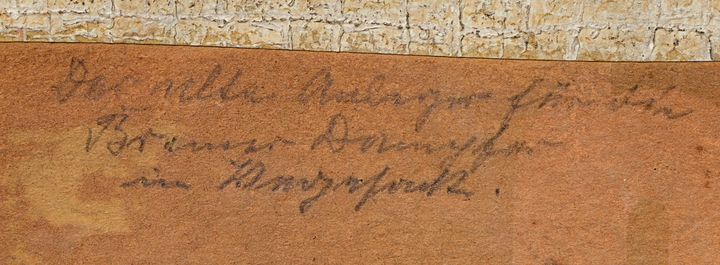 Der alte Anleger für die
Bremer Dampfer
in Vegesack.